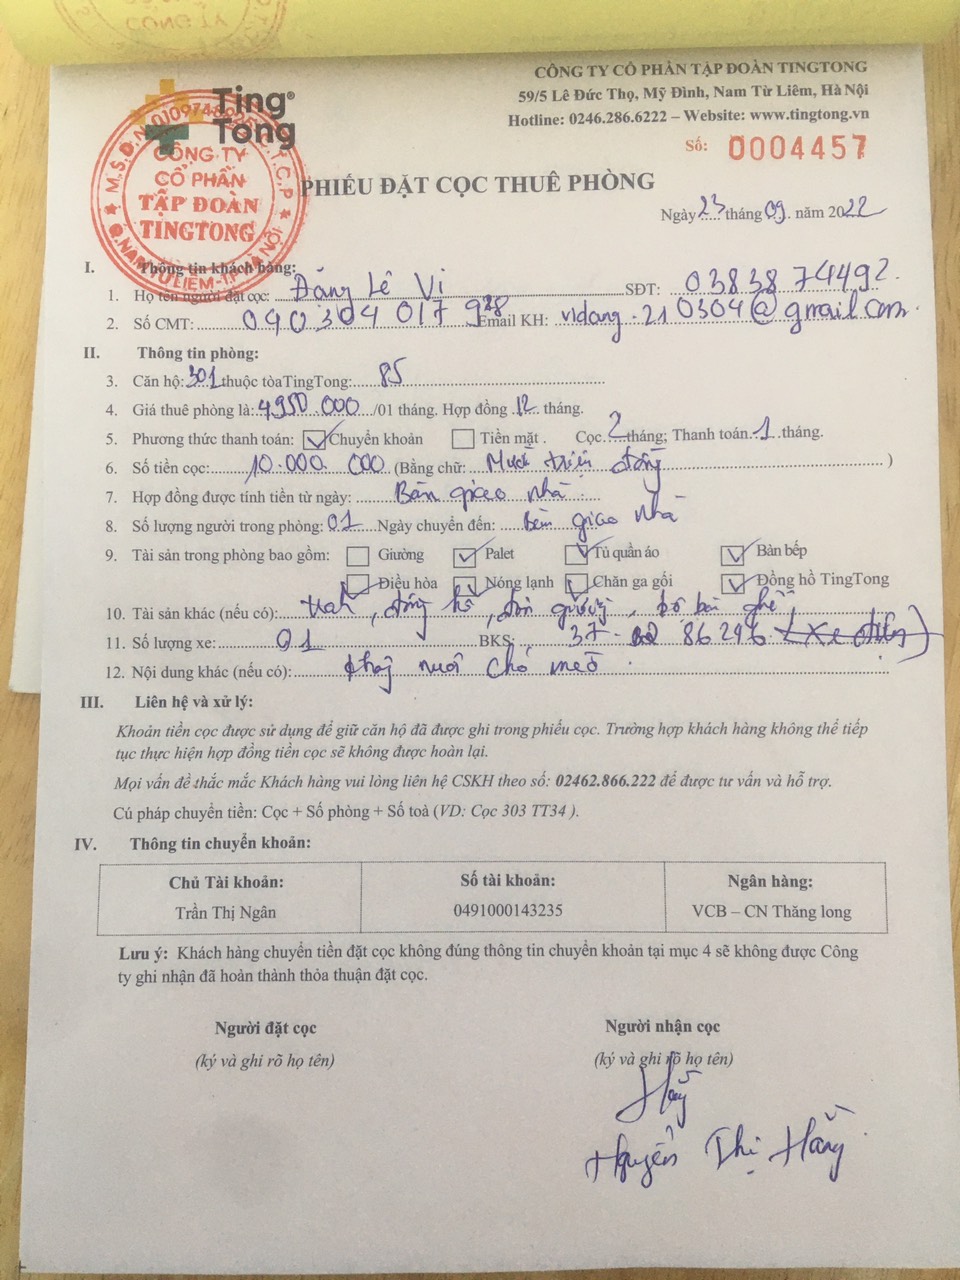 CÔNG TY
Ting
Tong
CÔNG TY CỔ PHẦN TẬP ĐOÀN TINGTONG
59/5 Lê Đức Thọ, Mỹ Đình, Nam Từ Liêm, Hà Nội
Hotline: 0246.286.6222 – Website: www.tingtong.vn
Số: 0004457
CÔNG TY
CỔ PHẦN
TẬP ĐOÀN
TINGTONG
Q.NAM TỪ LIÊM-T.P HÀ NỘI
PHIẾU ĐẶT CỌC THUÊ PHÒNG
Ngày 23 tháng 09 năm 2022
I. Thông tin khách hàng:
1. Họ tên người đặt cọc: Đặng Lê Vi SĐT: 0383874492.
2. Số CMT: 040304017928 Email KH: vidang.210304@gmail.com
II. Thông tin phòng:
3. Căn hộ: 301 thuộc tòa TingTong: 85
4. Giá thuê phòng là: 4950.000 /01 tháng. Hợp đồng 12 tháng.
5. Phương thức thanh toán: Chuyển khoản Tiền mặt . Cọc 2 tháng; Thanh toán 1 tháng.
6. Số tiền cọc: 10.000 000 (Bằng chữ: Mười triệu đồng )
7. Hợp đồng được tính tiền từ ngày: Bàn giao nhà
8. Số lượng người trong phòng: 01 Ngày chuyển đến: Bàn giao nhà
9. Tài sản trong phòng bao gồm: Giường Palet Tủ quần áo Bàn bếp
Điều hòa Nóng lạnh Chăn ga gối Đồng hồ TingTong
10. Tài sản khác (nếu có): tranh, đồng hồ, đèn giường, bộ bàn ghế
11. Số lượng xe: 01 BKS: 37- 86296
12. Nội dung khác (nếu có): nuôi chó mèo.
III. Liên hệ và xử lý:
Khoản tiền cọc được sử dụng để giữ căn hộ đã được ghi trong phiếu cọc. Trường hợp khách hàng không thể tiếp
tục thực hiện hợp đồng tiền cọc sẽ không được hoàn lại.
Mọi vấn đề thắc mắc Khách hàng vui lòng liên hệ CSKH theo số: 02462.866.222 để được tư vấn và hỗ trợ.
Cú pháp chuyển tiền: Cọc + Số phòng + Số toà (VD: Cọc 303 TT34 ).
IV. Thông tin chuyển khoản:
Chủ Tài khoản: Số tài khoản: Ngân hàng:
Trần Thị Ngân 0491000143235 VCB – CN Thăng long
Lưu ý: Khách hàng chuyển tiền đặt cọc không đúng thông tin chuyển khoản tại mục 4 sẽ không được Công
ty ghi nhận đã hoàn thành thỏa thuận đặt cọc.
Người đặt cọc Người nhận cọc
(ký và ghi rõ họ tên) (ký và ghi rõ họ tên)
Hằng
Nguyễn Thị Hằng